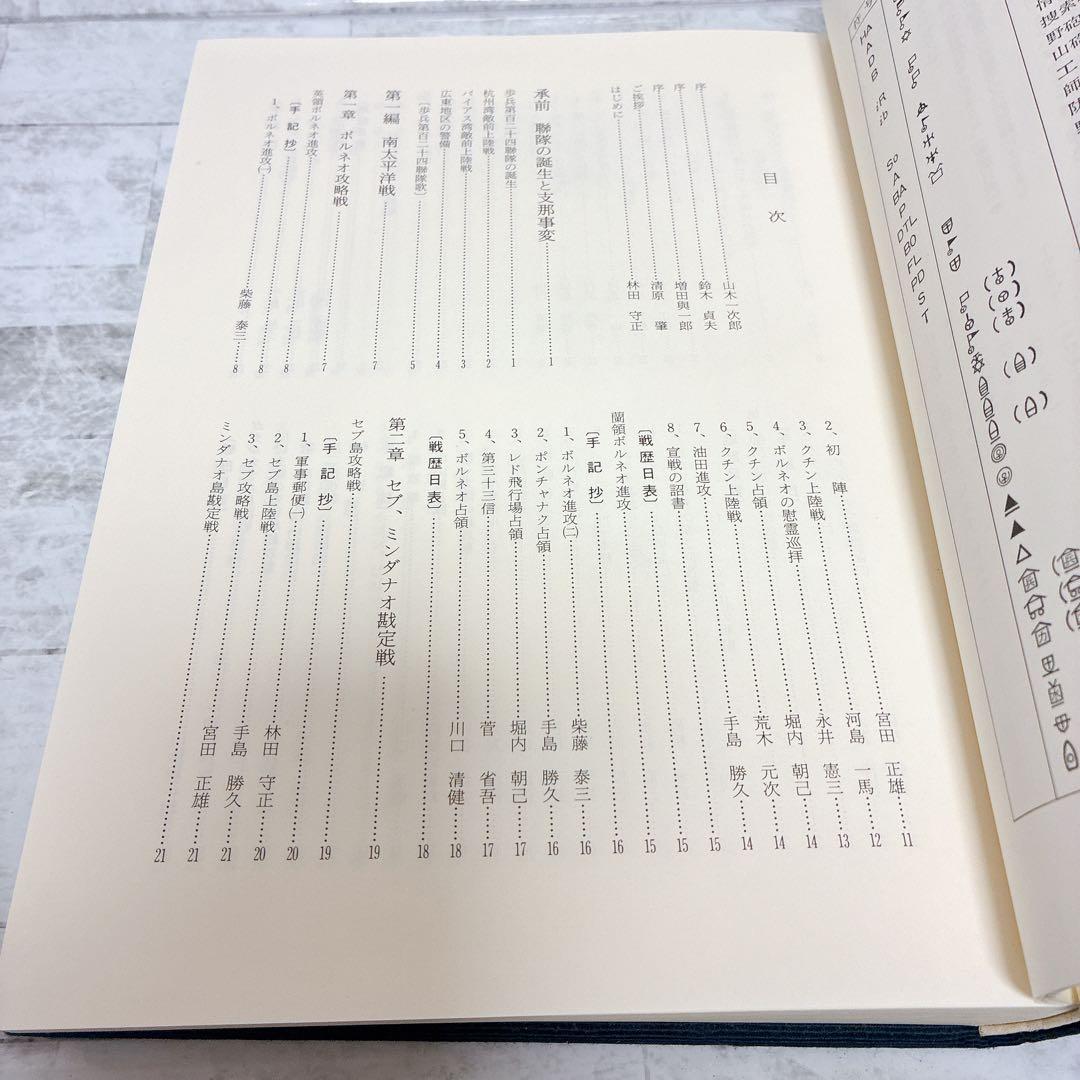 目次
序 山木一次郎
序 鈴木 貞夫
序 増田與一郎
ご挨拶 清原 肇
はじめに 林田 守正
承前 聯隊の誕生と支那事変 1
歩兵第百二十四聯隊の誕生 1
杭州湾敵前上陸戦 2
バイアス湾敵前上陸戦 3
広東地区の警備 4
〔歩兵第百二十四聯隊歌〕 5
第一編 南太平洋戦 7
第一章 ボルネオ攻略戦 7
英領ボルネオ進攻 8
〔手記抄〕 8
1、ボルネオ進攻㈠ 柴藤 泰三 8
2、初陣 宮田 正雄 11
3、クチン上陸戦 河島 一馬 12
4、ボルネオの慰霊巡拝 永井 憲三 13
5、クチン占領 堀内 朝己 14
6、クチン上陸戦 荒木 元次 14
7、油田進攻 手島 勝久 14
8、宣戦の詔書 15
〔戦歴日表〕 15
蘭領ボルネオ進攻 15
〔手記抄〕 16
1、ボルネオ進攻㈡ 柴藤 泰三 16
2、ポンチャナク占領 手島 勝久 16
3、レド飛行場占領 堀内 朝己 17
4、第三十三信 菅 省吾 17
5、ボルネオ占領 川口 清健 18
〔戦歴日表〕 18
第二章 セブ、ミンダナオ戡定戦 19
セブ島攻略戦 19
〔手記抄〕 20
1、軍事郵便㈠ 林田 守正 20
2、セブ島上陸戦 手島 勝久 21
3、セブ攻略戦 宮田 正雄 21
ミンダナオ島戡定戦 21
HA
A
D
B
iR
ib
So
A
BA
P
DTL
BO
FL
PD
S
T